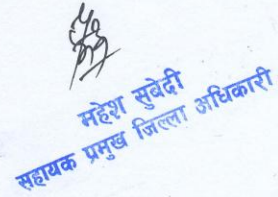 महेश सुवेदी
सहायक प्रमुख जिल्ला अधिकारी